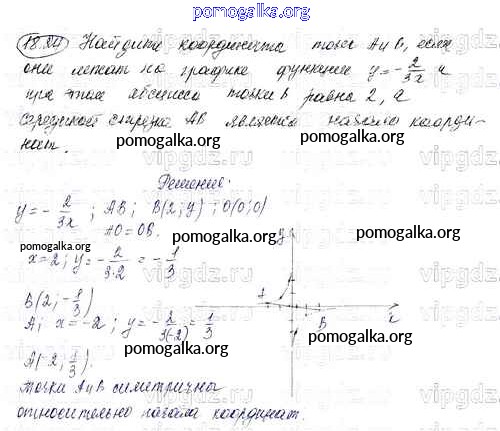 pomogalka.org
18.24 Найдите координаты точек А и В, если
они лежат на графике функции y = - 2/3x и
при этом абсцисса точки В равна 2, а
серединой отрезка АВ является начало коорди-
нат.
Решение.
y = - 2/3x ; AB; B(2; y); O(0; 0)
AO = OB.
x = 2; y = - 2/3·2 = - 1/3
B(2; - 1/3)
A; x = -2; y = - 2/3(-2) = 1/3
A(-2; 1/3).
Точки А и В симетричны
относительно начала координат.
y
A
B
x
pomogalka.org
pomogalka.org
pomogalka.org
pomogalka.org
pomogalka.org
pomogalka.org
pomogalka.org
pomogalka.org
vipgdz.ru
vipgdz.ru